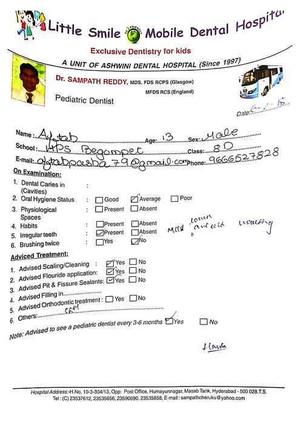 Little Smile Mobile Dental Hospital
Exclusive Dentistry for kids
A UNIT OF ASHWINI DENTAL HOSPITAL (Since 1997)
Dr. SAMPATH REDDY, MDS, FDS RCPS (Glasgow)
MFDS RCS (England)
Pediatric Dentist
Date:
Name: Aftab Age: 13 Sex: Male
School: HPS Begumpet Class: 8D
E-mail: aftabpasha79@gmail.com Phone: 9666527828
On Examination:
1. Dental Caries in (Cavities) :
2. Oral Hygiene Status : Good Average Poor
3. Physiological Spaces : Present Absent
4. Habits : Present Absent
5. Irregular teeth : Present Absent Mild
6. Brushing twice : Yes No
Adviced Treatment:
1. Advised Scaling/Cleaning : Yes No
2. Advised Flouride application : Yes No
3. Advised Pit & Fissure Sealants : Yes No
4. Advised Filling in
5. Advised Orthodontic treatment : Yes No
6. Others:
Note: Advised to see a pediatric dentist every 3-6 months Yes No
Hospital Address: H.No. 10-3-304/13, Opp: Post Office, Humayunnagar, Masab Tank, Hyderabad - 500 028. T.S.
Tel: (C) 23537612, 23535656, 23590590, 23535858, E-mail: sampathcheruku@yahoo.com